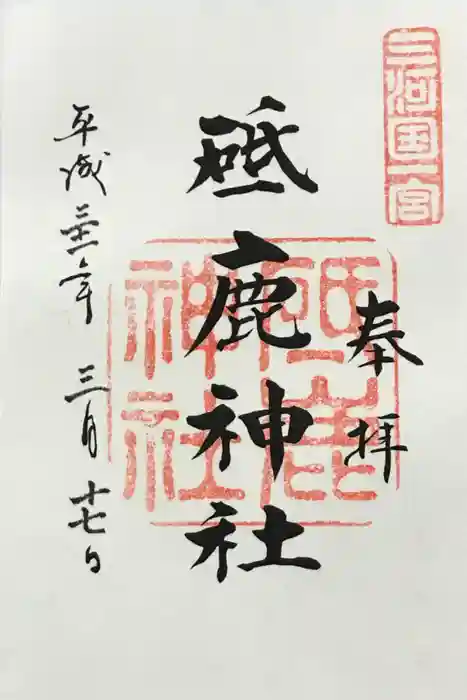 三河国一宮
奉拝
砥鹿神社
砥鹿神社
平成三十一年三月十七日